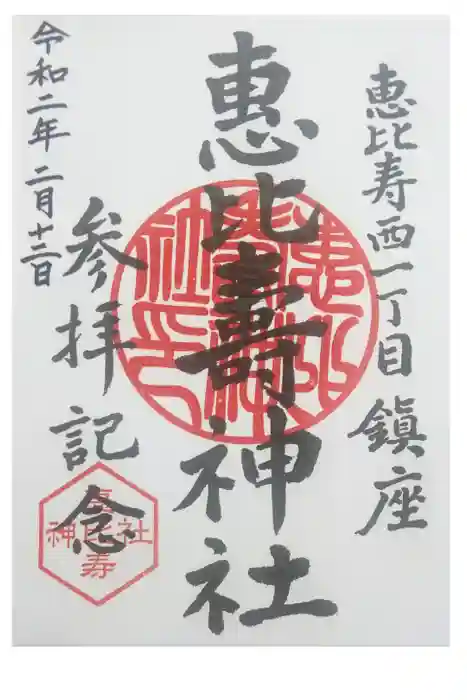 恵比寿西一丁目 鎮座
惠比壽神社
参拝記念
令和二年 二月十二日
恵比寿
神社